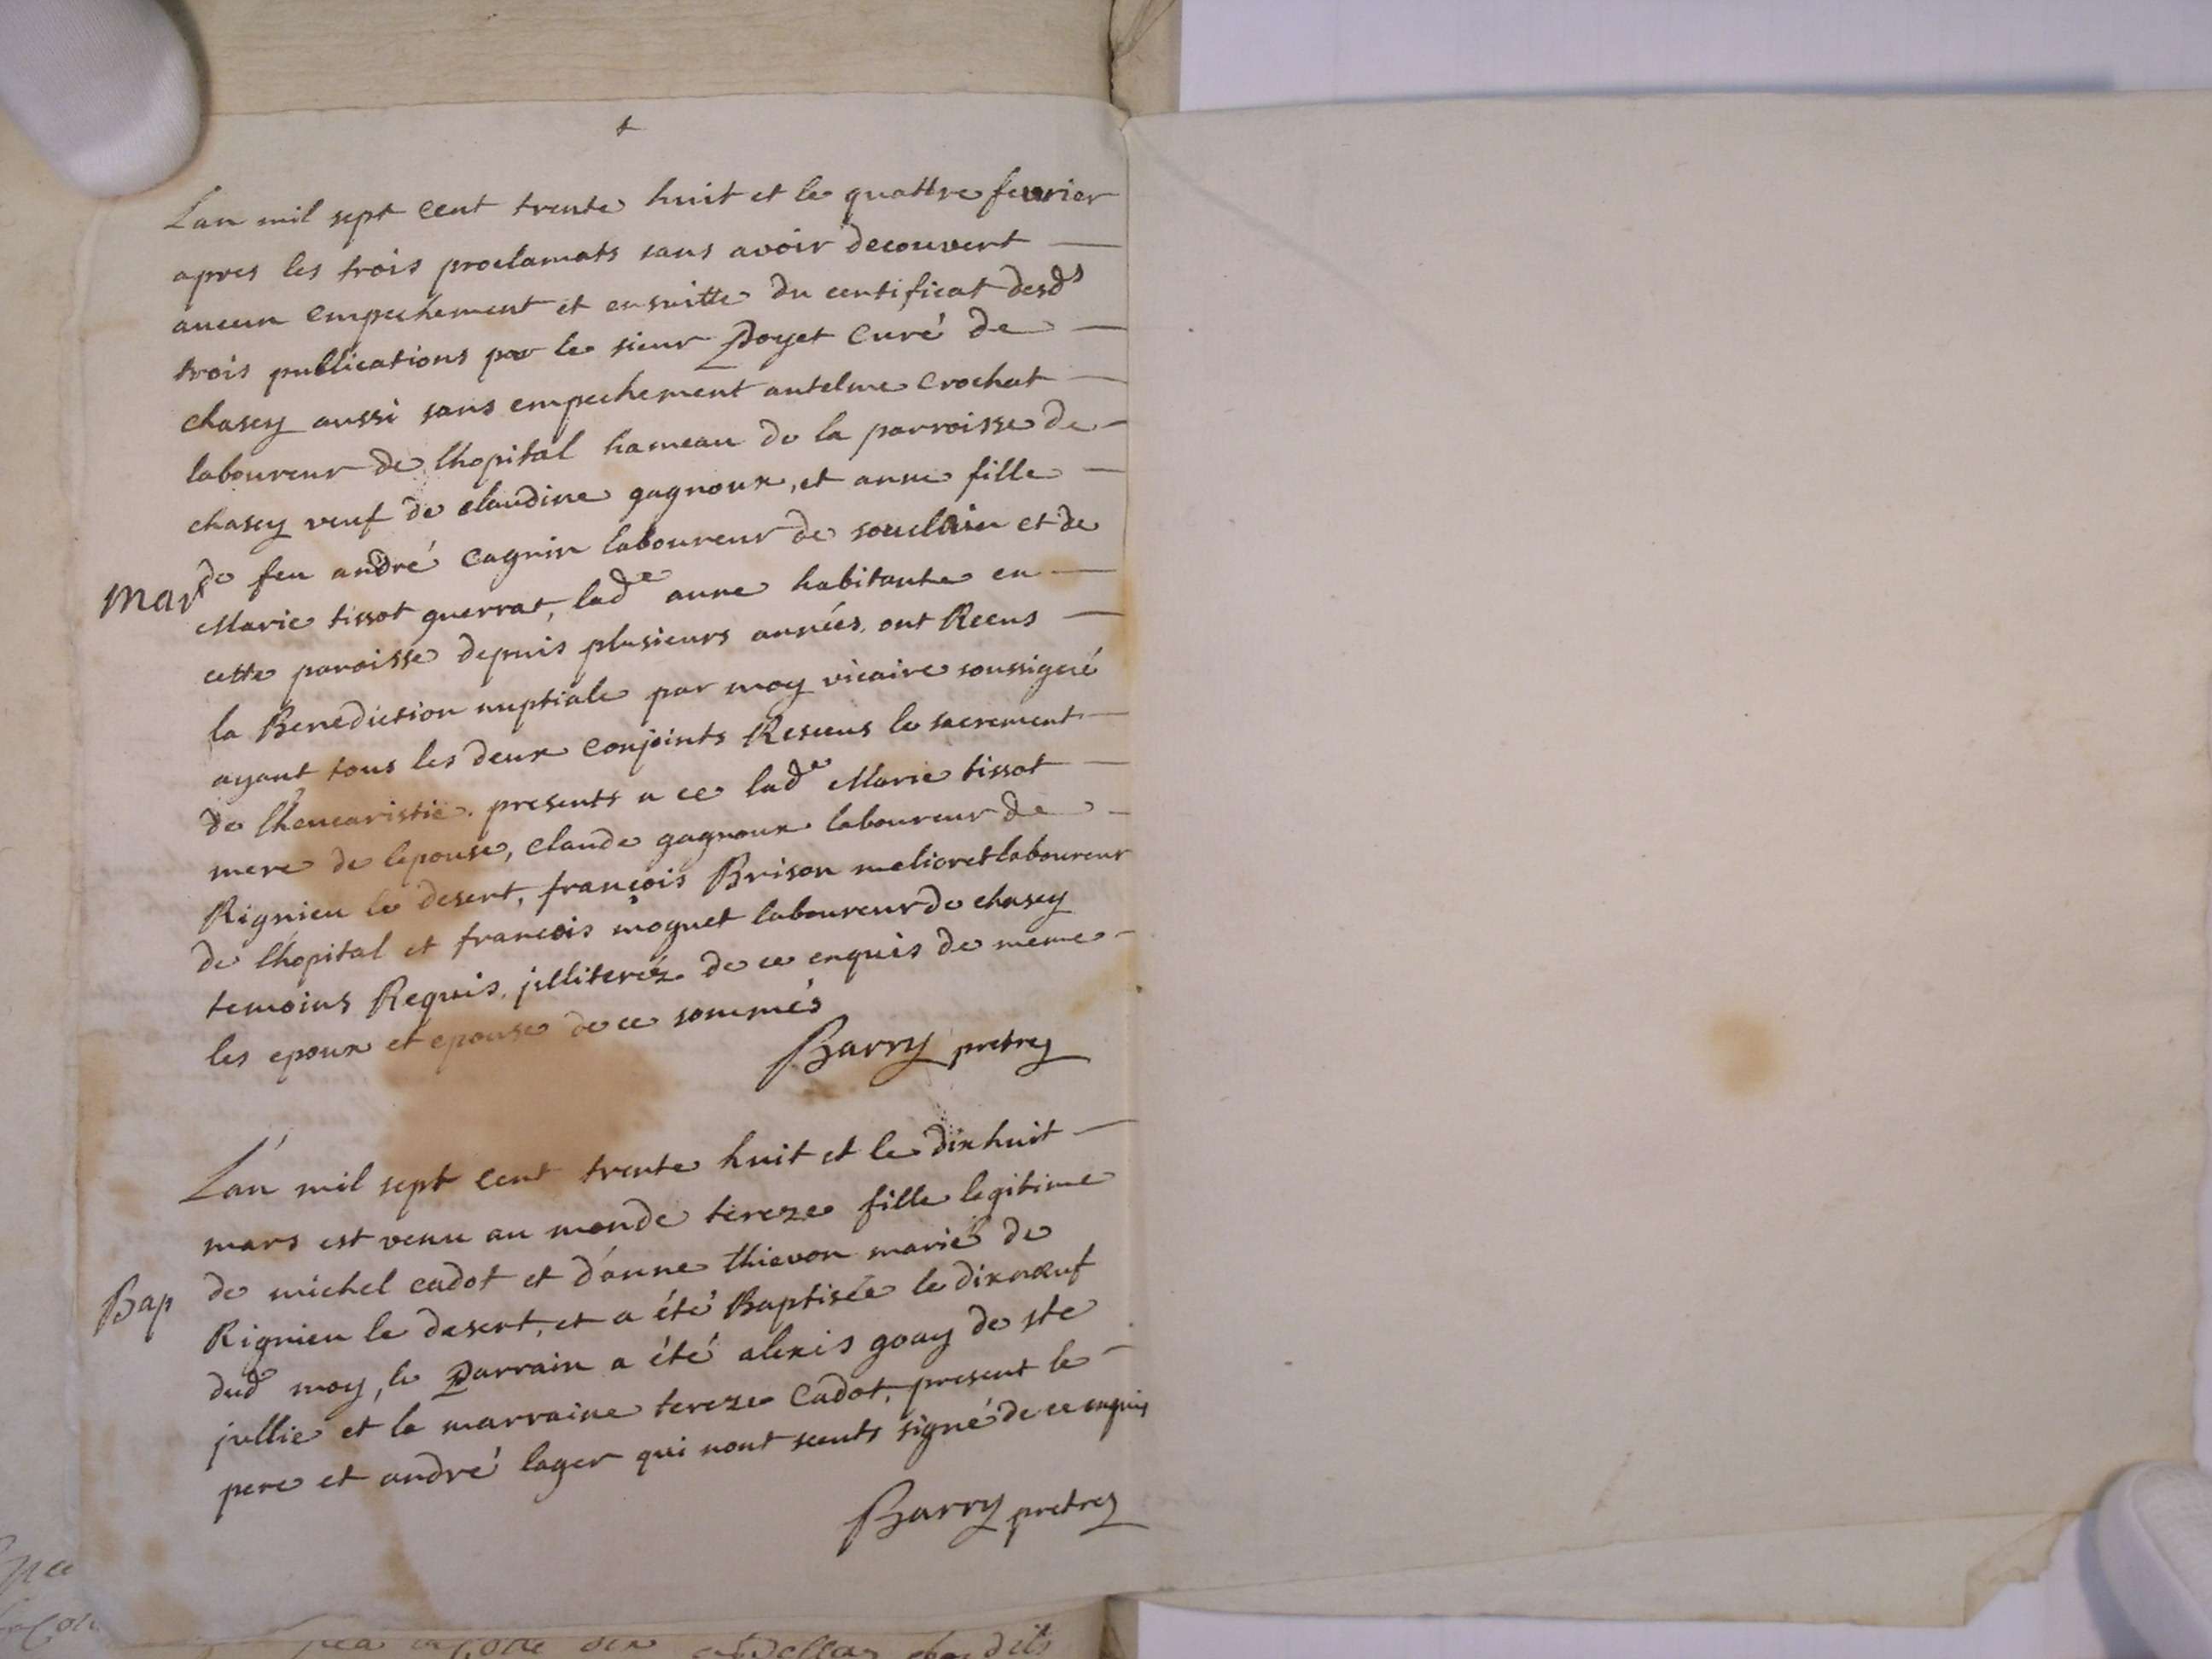 +
Lan mil sept cent trente huit et le quattre fevrier
apres les trois proclamats sans avoir decouvert —
aucun empechement et ensuitte du certificat desds
trois publications par le sieur Poyet Curé de —
chasey aussi sans empechement antelme Crochat —
laboureur de lhopital hameau de la parroisse de -
chasey veuf de claudine gagnoux, et anne fille —
Mar de feu andré Cagnin laboureur de souclain et de
Marie tissot guerrat, lade anne habitante en —
cette paroisse depuis plusieurs années. ont Receus —
la Benediction nuptiale par moy vicaire soussigné
ayant tous les deux Conjoints Resceus le sacrement —
de lheucaristie. presents a ce lade Marie tissot —
mere de lepouse, claude gagnoux laboureur de -
Rignieu le desert, françois Brison melioret laboureur
de lhopital et francois moguet laboureur de chasey
temoins Requis. jilliteréz de ce enquis de meme -
les epoux et epouse de ce sommés
Barry pretre
Lan mil sept Cent trente huit et le dix huit —
mars est venu au monde tereze fille legitime
de michel cadot et d'anne thievon mariés de
Bap Rignieu le desert, et a été Baptisée le dix nœuf
dud moy, le Parrain a été alexis goay de ste
jullie et la marraine tereze Cadot, present le -
pere et andré lager qui nont sceuts signé de ce enquis
Barry pretre